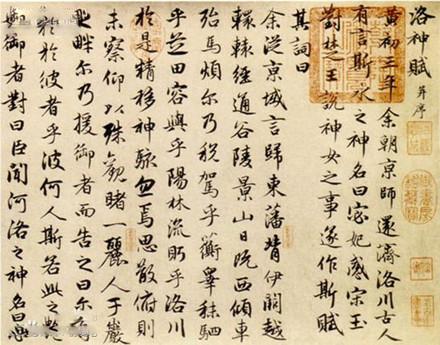 洛神賦 并序
黃初三年余朝京師還濟洛川古人
有言斯水之神名曰宓妃感宋玉
對楚王說神女之事遂作斯賦
其詞曰
余從京域言歸東藩背伊闕越
轘轅經通谷陵景山日既西傾車
殆馬煩尔乃稅駕乎蘅皋秣駟
乎芝田容與乎陽林流眄乎洛川
於是精移神駭忽焉思散俯則
未察仰以殊觀睹一麗人于巖
之畔尔乃援御者而告之曰尔有
於彼者乎彼何人斯若此之艷
御者對曰臣聞河洛之神名曰